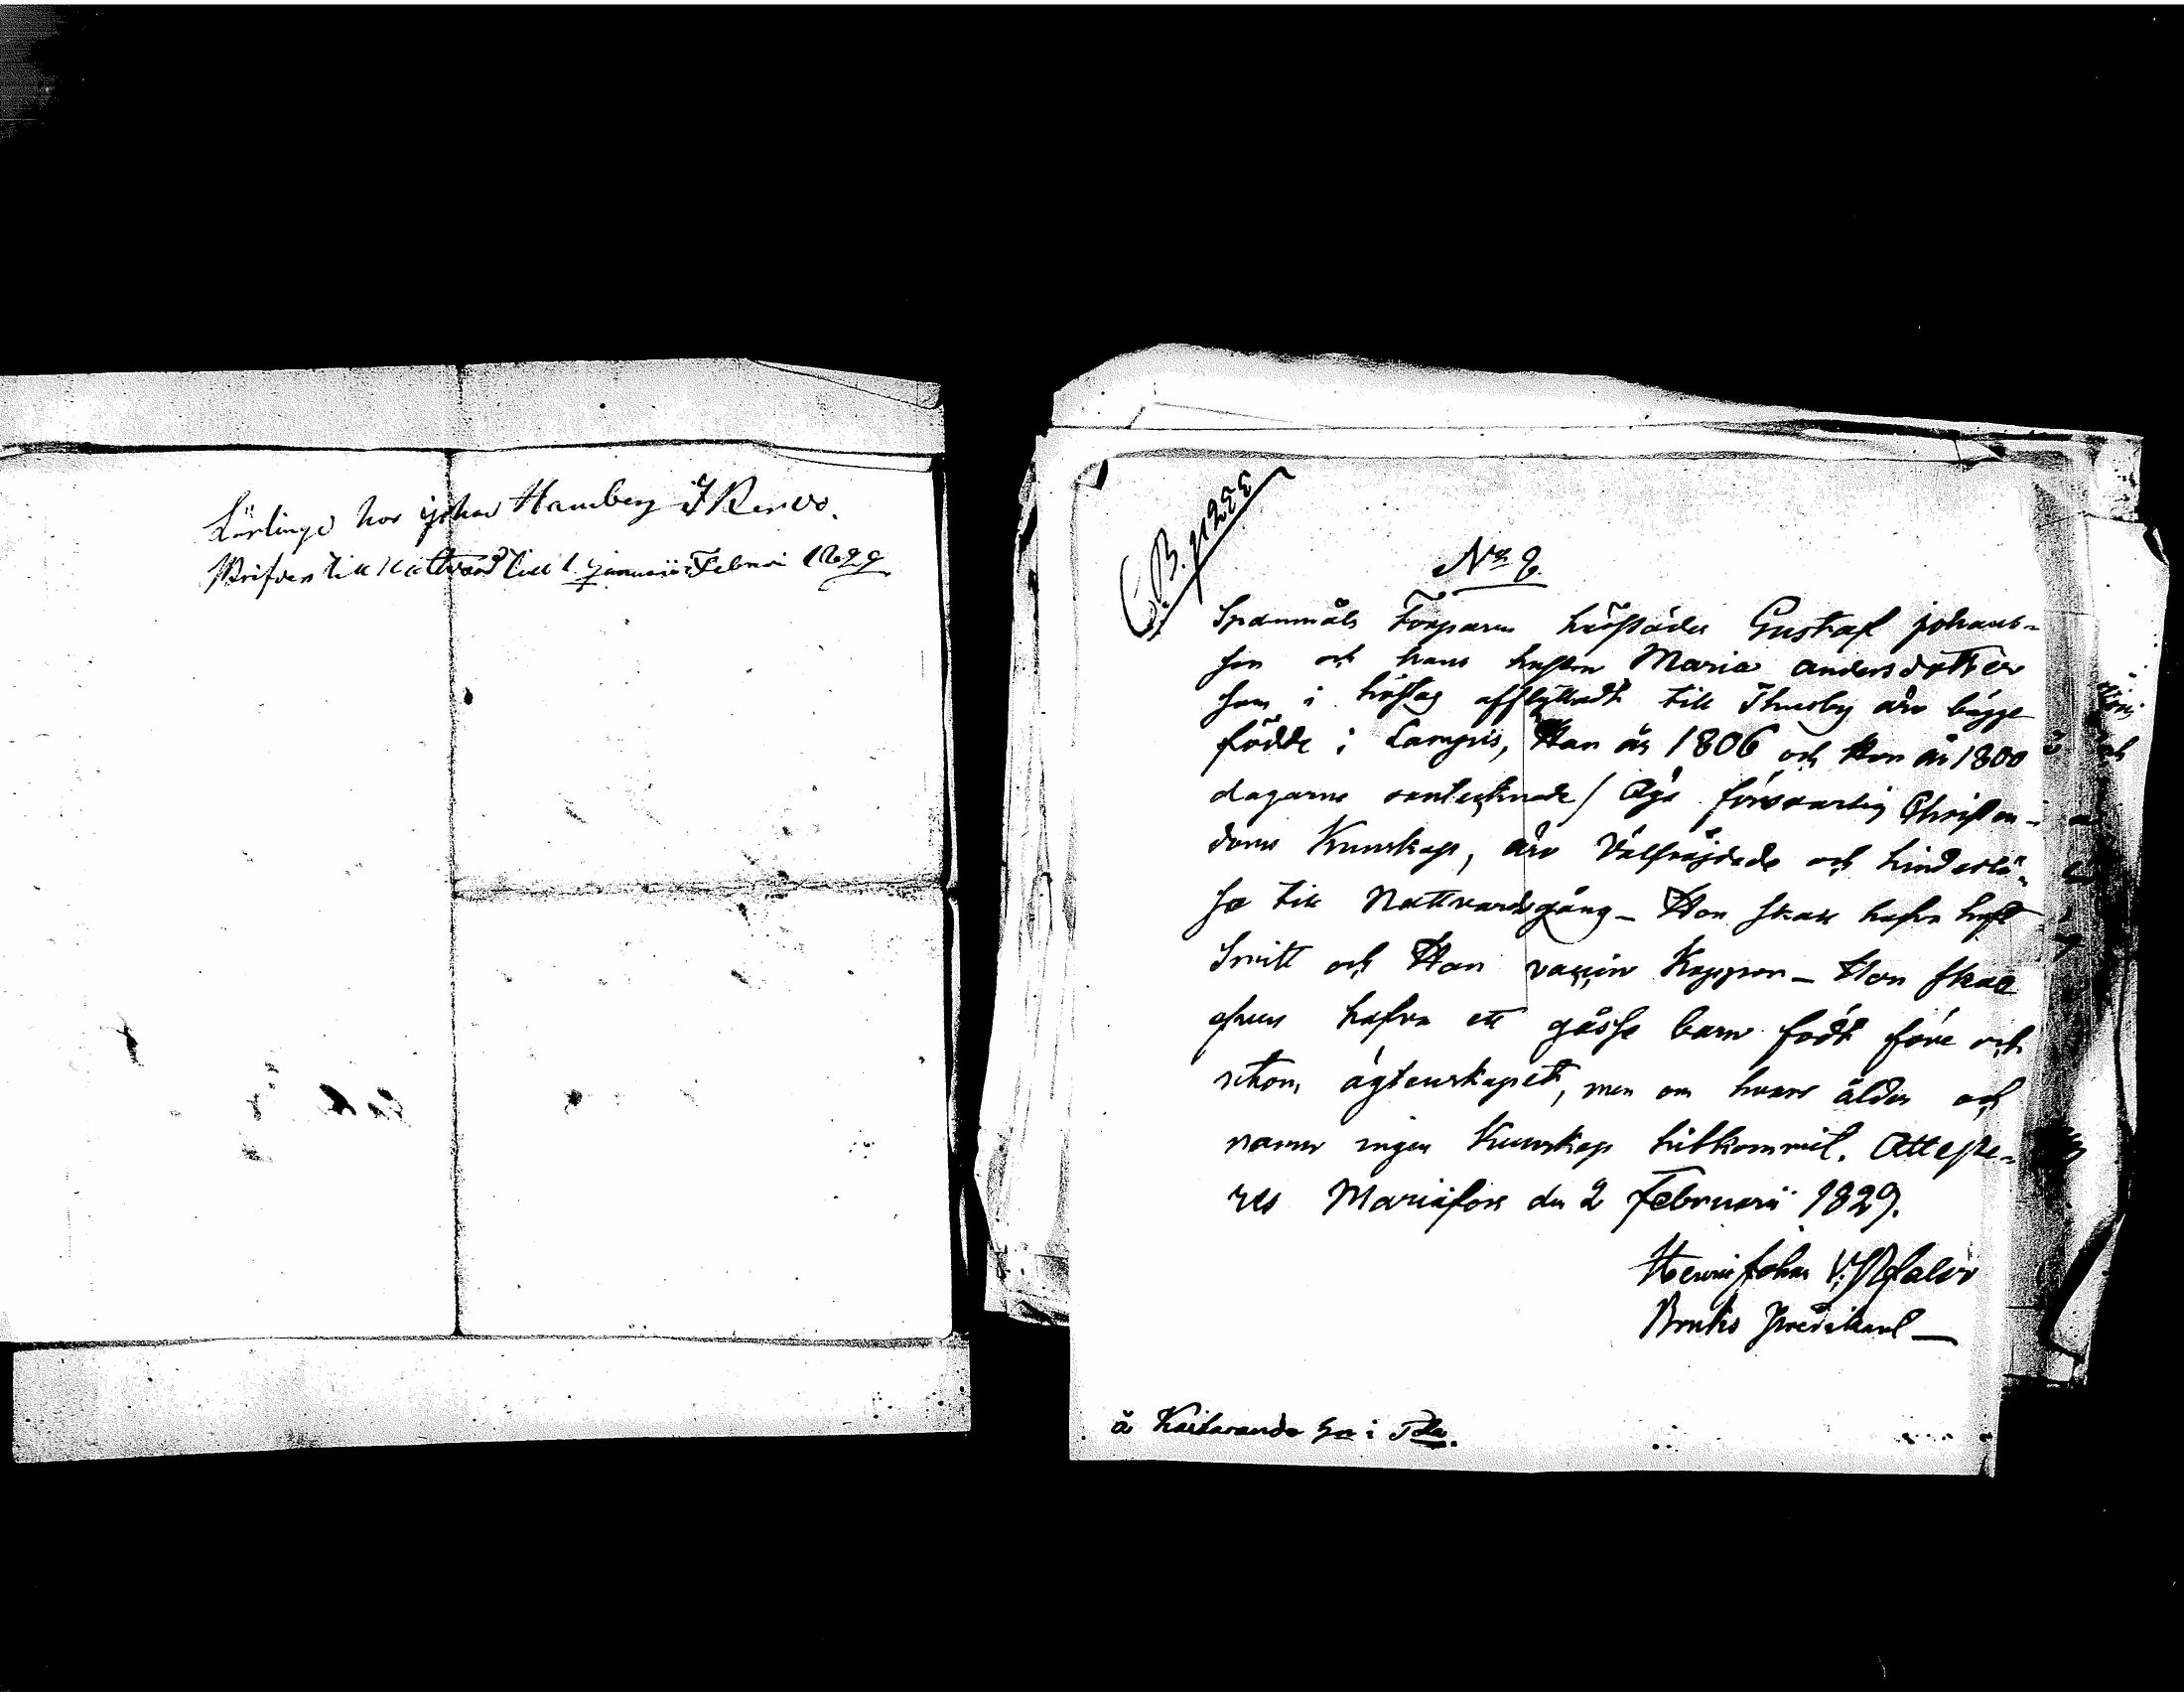 Lärlinge hos johan Hamberg I Kervo.
till Nattvard till 1. Januarii Februari 1829
C.B. p.
No 2.
Spanmåls Torparen Gustaf johans-
son och hans hustru Maria andersdotter
som i höstas afflyttadt till Thusby äro bägge
födde i Lampis, Han år 1806 och Hon år 1800
dagarne oantecknade / äga försvarlig Christen-
doms Kunskap, äro Välfräjdade och hinderlö-
sa till Nattvardsgång - Hon skall hafva haft
Smitt och Han vaccin Koppor - Hon skall
äfven hafva ett gåsse barn födt före och
utom ägtenskapet, men om hvars ålder och
namn ingen Kunskap tillkommit. Atteste-
res Mariæfors den 2 Februarii 1829.
Henric Johan
Bruks Prædikant
å i